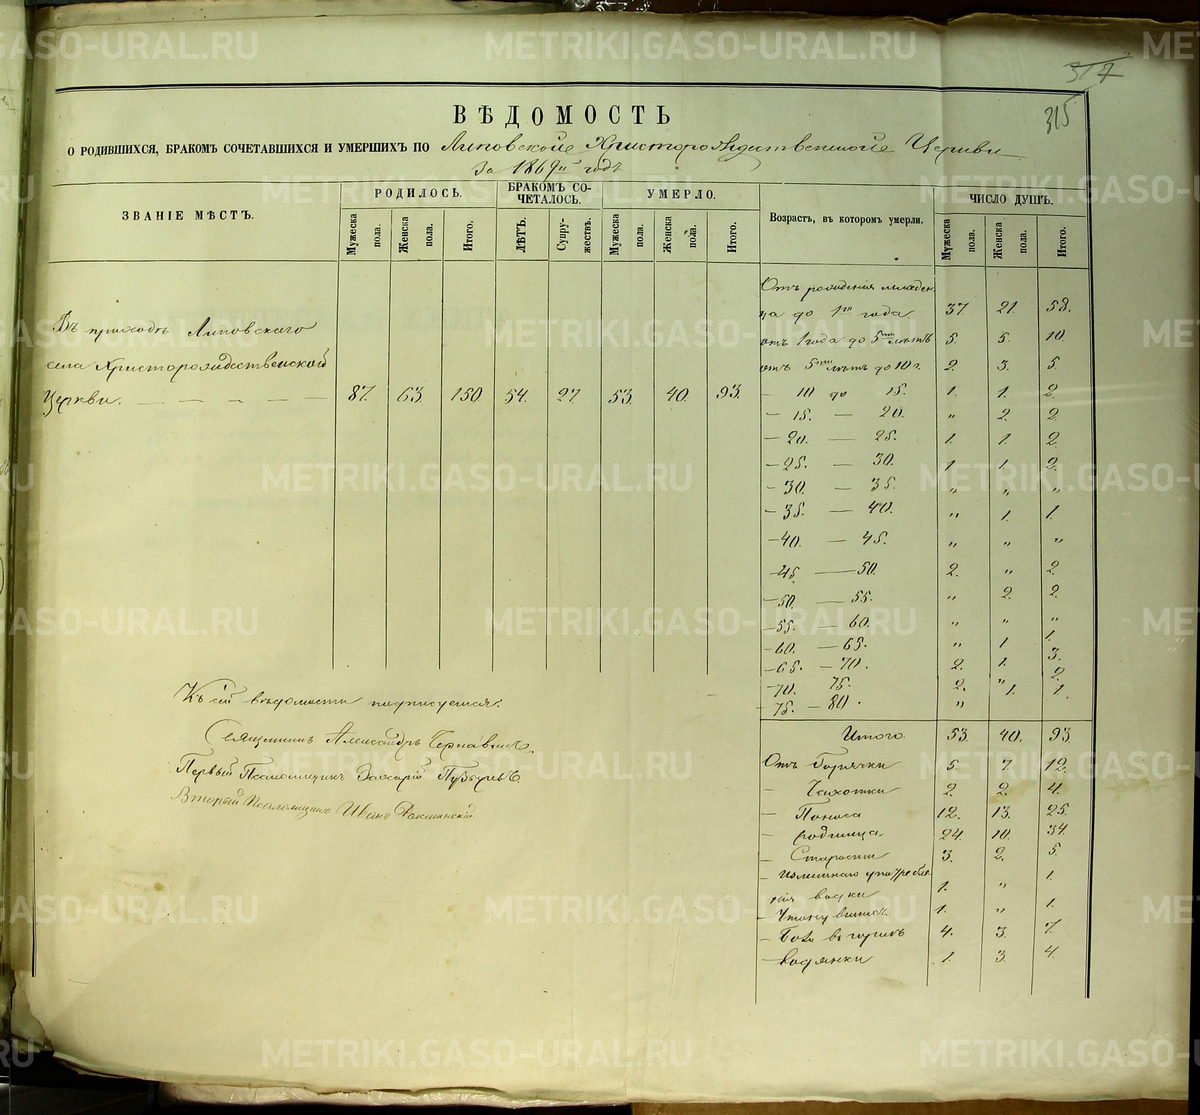 317
315
ВѢДОМОСТЬ
О РОДИВШИХСЯ, БРАКОМЪ СОЧЕТАВШИХСЯ И УМЕРШИХЪ ПО Липовской Христорождественской Церкви
За 1869й годъ
ЗВАНІЕ МѢСТЪ.
РОДИЛОСЬ.
БРАКОМЪ СО-
ЧЕТАЛОСЬ.
УМЕРЛО.
Возрастъ, въ которомъ умерли.
ЧИСЛО ДУШЪ.
Мужеска пола. Женска пола. Итого. ЛѢТЪ. Супру-жествъ. Мужеска пола. Женска пола. Итого. Мужеска пола. Женска пола. Итого.
Въ приходѣ Липовскаго
села Христорождественской
Церкви. — — — — 87. 63. 150 54. 27. 53. 40. 93.
Отъ рожденія младен
ца до 1го года 37. 21. 58.
отъ 1 года до 5ти лѣтъ 5. 5. 10.
отъ 5ти лѣтъ до 10 г. 2. 3. 5.
— 10 до 15. 1. 1. 2.
— 15. — 20. „ 2. 2.
— 20. — 25. 1. 1. 2.
— 25. — 30. 1. 1. 2.
— 30. — 35. „ „ „
— 35. — 40. „ 1. 1.
— 40. — 45. „ „ „
— 45. — 50. 2. „ 2.
— 50. — 55. „ 2. 2.
— 55. — 60. „ „ „
— 60. — 65. „ 1 1.
— 65. — 70. 2. 1. 3.
— 70. 75. 2. „ 2.
— 75. — 80. „ 1. 1.
Итого. 53 40. 93.
Отъ Горячки 5. 7. 12.
— Чахотки 2. 2. 4.
— Поноса 12. 13. 25.
— родимца. 24. 10. 34.
— Старости 3. 2. 5.
— излишняго употребле
нія водки 1. „ 1.
— 1. „ 1.
— Боли въ горлѣ 4. 3. 7.
— водянки 1. 3. 4.
Къ сей вѣдомости подписуемся:
Священникъ Александръ
Первый Псаломщикъ Захарій
Второй Псаломщикъ Иванъ
METRIKI.GASO-URAL.RU